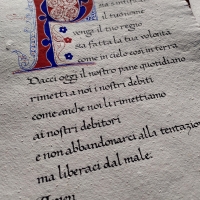 sia santificato
il tuo nome
venga il tuo regno
sia fatta la tua volontà
come in cielo così in terra
Dacci oggi il nostro pane quotidiano
rimetti a noi i nostri debiti
come anche noi li rimettiamo
ai nostri debitori
e non abbandonarci alla tentazio
ma liberaci dal male.
Amen